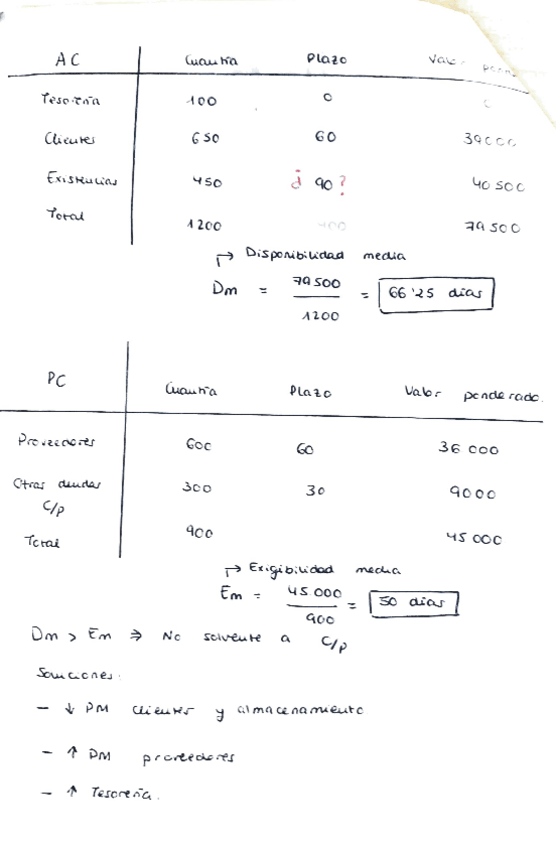 AC Cuantía Plazo Valor pond.
Tesorería 100 0 0
Clientes 650 60 39000
Existencias 450 ¿ 90 ? 40 500
Total 1200 79 500
↱ Disponibilidad media
Dm = 79 500 / 1200 = 66'25 días
PC Cuantía Plazo Valor ponderado.
Proveedores 600 60 36 000
Otras deudas 300 30 9000
C/p
Total 900 45 000
↱ Exigibilidad media
Em = 45 000 / 900 = 50 días
Dm > Em ⇒ No solvente a C/p
Soluciones:
- ↓ PM clientes y almacenamiento
- ↑ PM proveedores
- ↑ Tesorería.